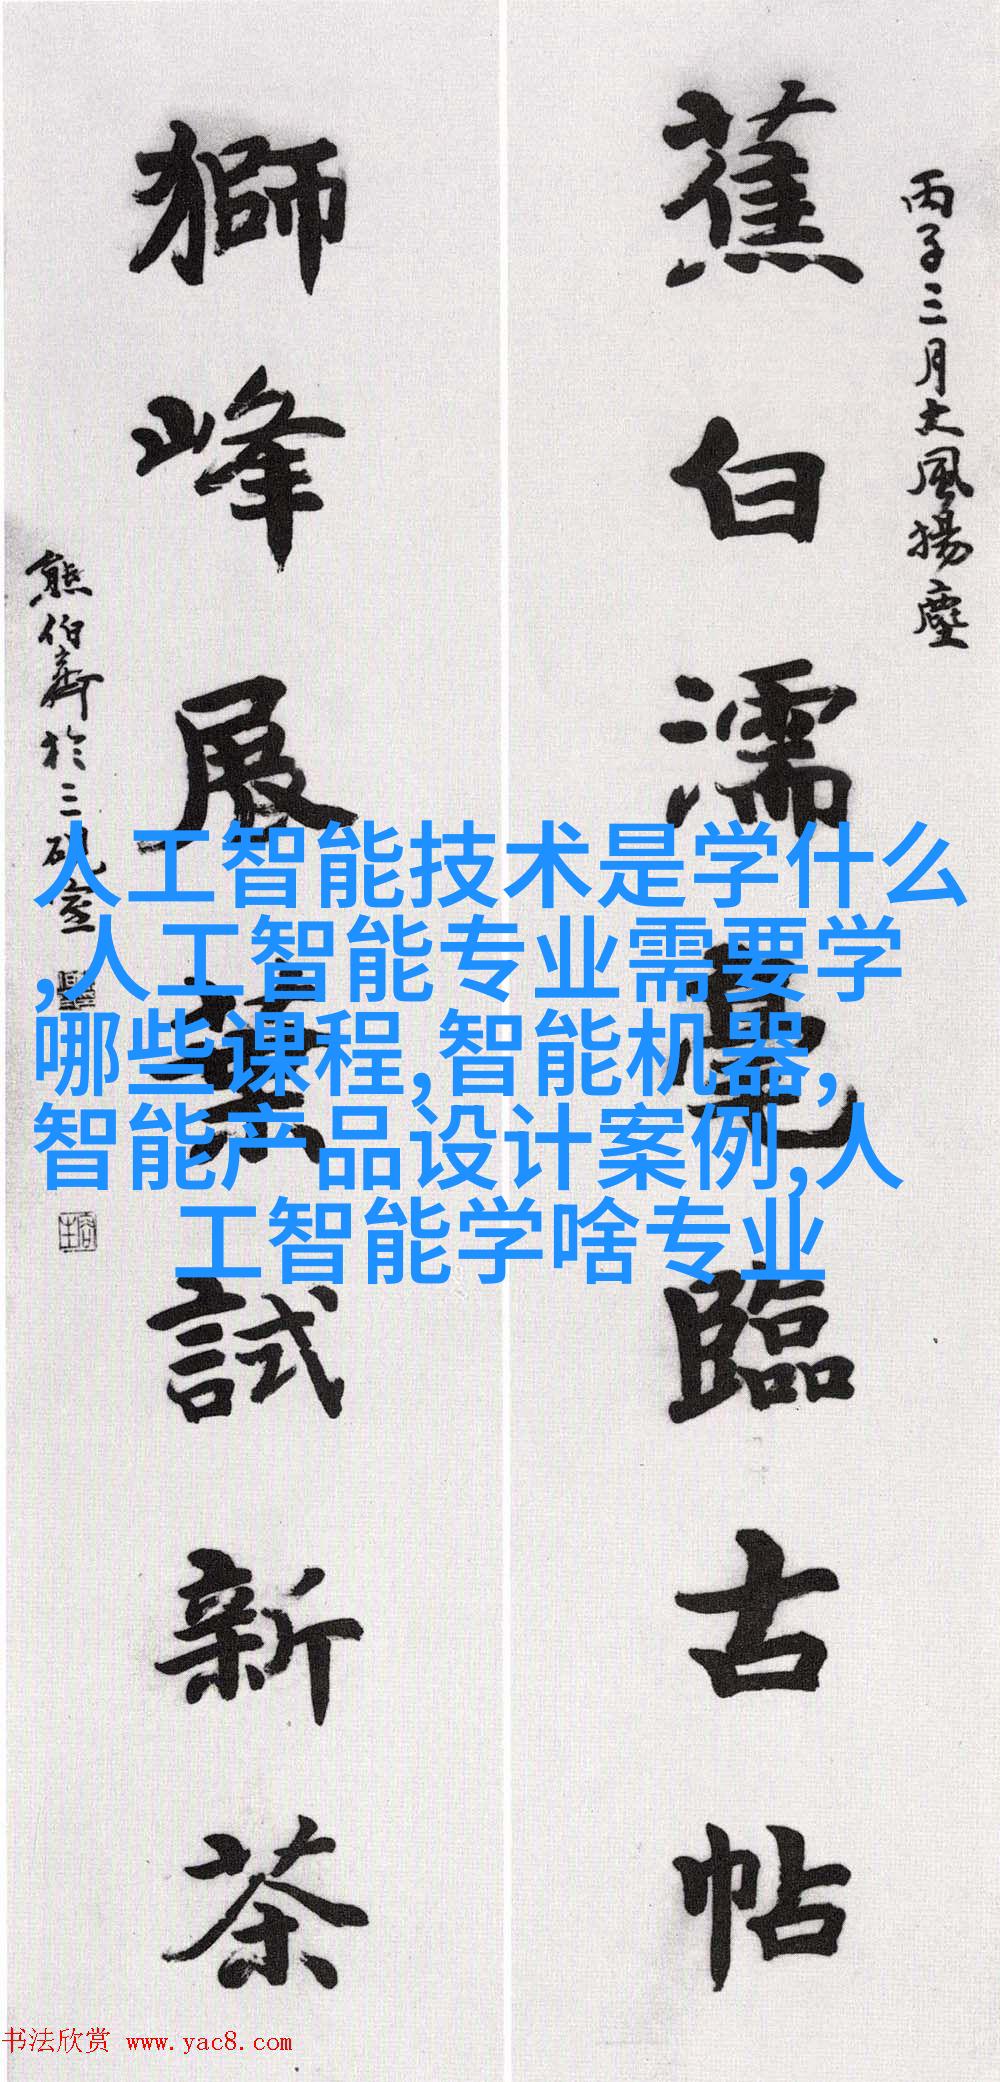 丙子三月大風揚塵
蕉白濡毫臨古帖
獅峰展葉試新茶
熊伯齊於三硯室
人工智能技术是学什么
,人工智能专业需要学
哪些课程,智能机器,
智能产品设计案例,人
工智能学啥专业
书法欣赏 www.yac8.com